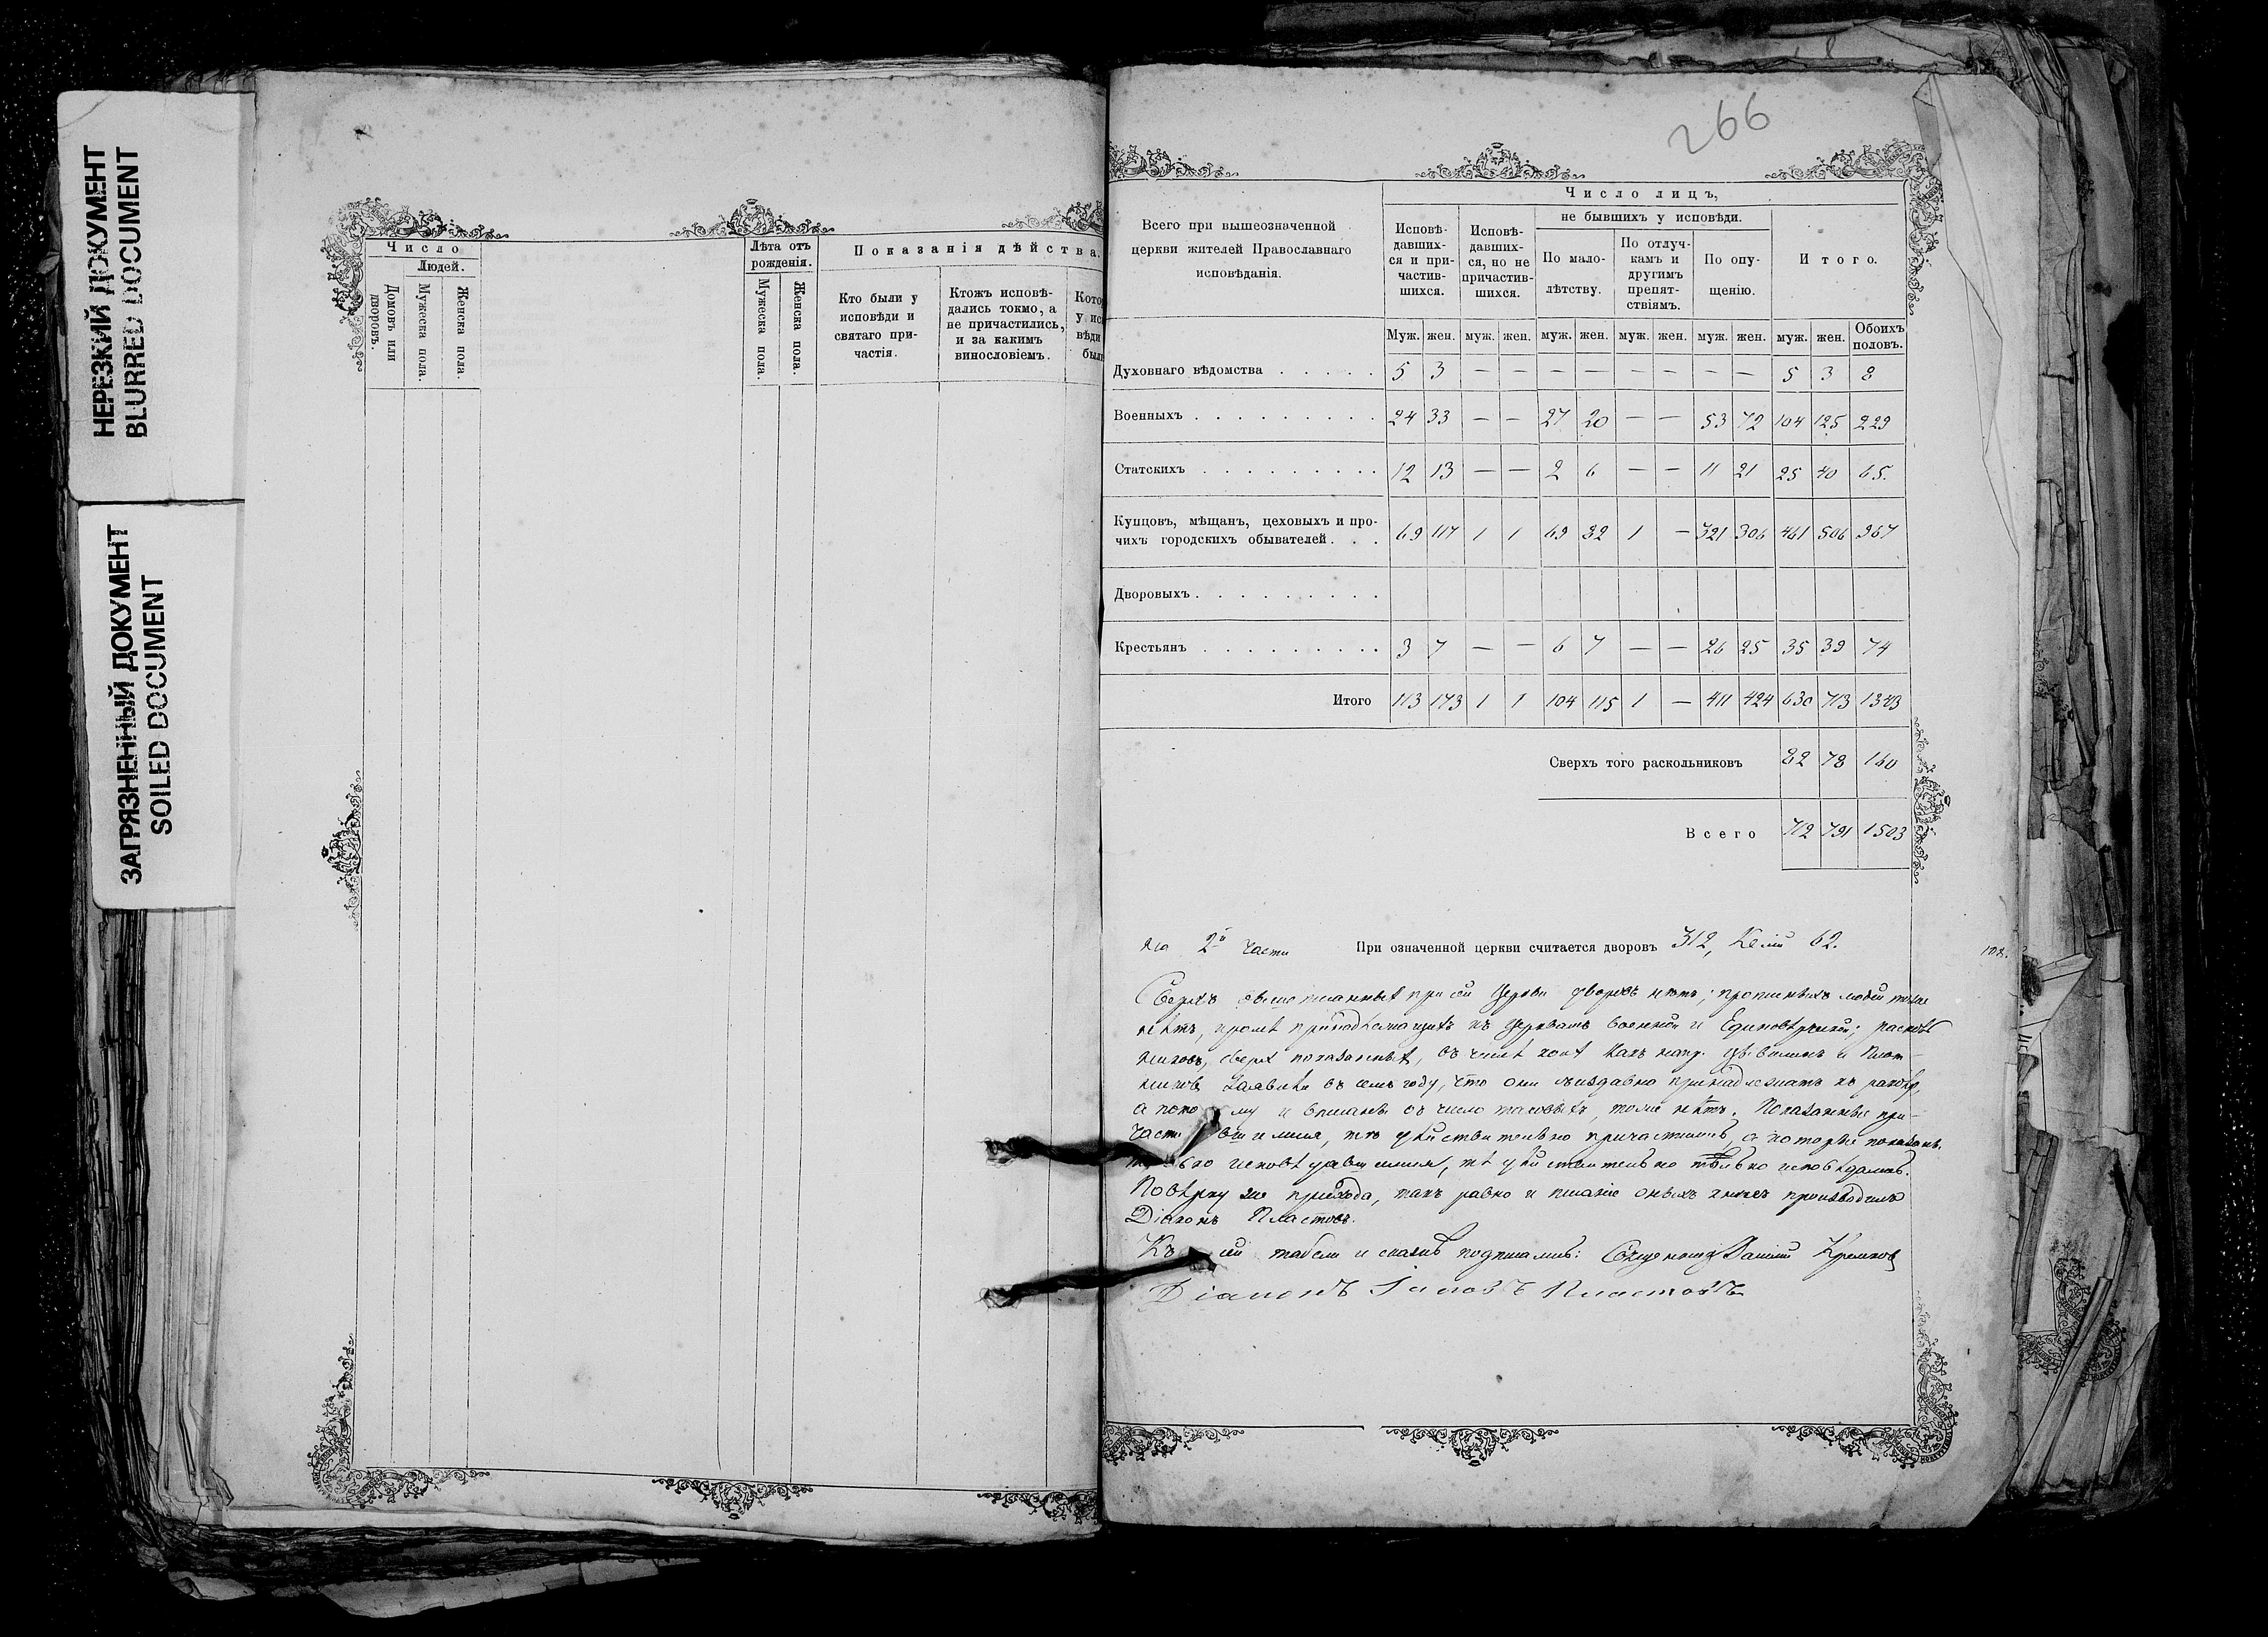 НЕРЕЗКИЙ ДОКУМЕНТ
BLURRED DOCUMENT
ЗАГРЯЗНЕННЫЙ ДОКУМЕНТ
SOILED DOCUMENT
Число
Людей.
Домовъ или дворовъ.
Мужеска пола.
Женска пола.
Лѣта отъ рожденія.
Мужеска пола.
Женска пола.
Показанія дѣйства.
Кто были у исповѣди и святаго причастія.
Ктожъ исповѣдались токмо, а не причастились, и за какимъ винословіемъ.
266
Всего при вышеозначенной церкви жителей Православнаго исповѣданія.
Число лицъ,
не бывшихъ у исповѣди.
Исповѣдавшихся и причастившихся.
Исповѣдавшихся, но не причастившихся.
По малолѣтству.
По отлучкамъ и другимъ препятствіямъ.
По опущенію.
Итого.
Муж. жен. муж. жен. муж. жен. муж. жен. муж. жен. муж. жен. Обоихъ половъ.
Духовнаго вѣдомства . . . . . 5 3 — — — — — — — — 5 3 8
Военныхъ . . . . . . . . . 24 33 — — 27 20 — — 53 72 104 125 229
Статскихъ . . . . . . . . . 12 13 — — 2 6 — — 11 21 25 40 65.
Купцовъ, мѣщанъ, цеховыхъ и про-
чихъ городскихъ обывателей . . . 69 117 1 1 69 82 1 — 321 306 461 506 967
Дворовыхъ . . . . . . . . .
Крестьянъ . . . . . . . . . 3 7 — — 6 7 — — 26 25 35 39 74
Итого 113 173 1 1 104 115 1 — 411 424 630 713 1343
Сверхъ того раскольниковъ 82 78 160
Всего 712 791 1503
2й части При означенной церкви считается дворовъ 312, Келій 62.
Сверхъ при сей Церкви дворовъ нѣтъ; людей
нѣтъ, кромѣ принадлежащихъ къ Церквамъ военной и Единовѣрческой;
сверхъ показанныхъ, въ числѣ
въ семъ году, что они издавна принадлежатъ къ
и вписаны въ число таковыхъ, тоже нѣтъ. Показанные при-
дѣйствительно причастились, а которые показаны
дѣйствительно только исповѣдались.
Повѣрку же прихода, такъ равно и писаніе оныхъ книгъ производилъ
Діаконъ Пластовъ.
Къ сей табели и подписались: Священникъ
Діаконъ Іаковъ Пластовъ